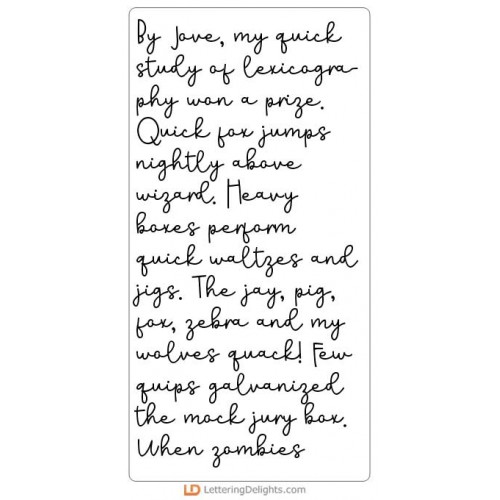 By Jove, my quick
study of lexicogra-
phy won a prize.
Quick fox jumps
nightly above
wizard. Heavy
boxes perform
quick waltzes and
jigs. The jay, pig,
fox, zebra and my
wolves quack! Few
quips galvanized
the mock jury box.
When zombies
LD LetteringDelights.com